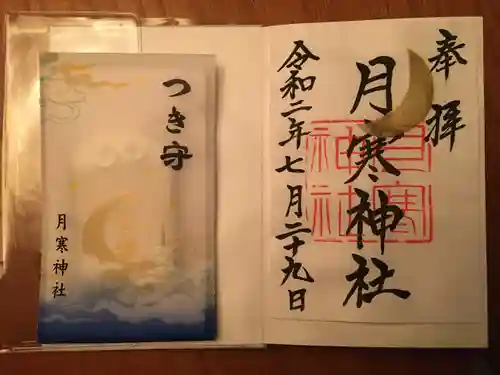 奉拝
月寒神社
令和二年七月二十九日
月寒神社
つき守
月寒神社